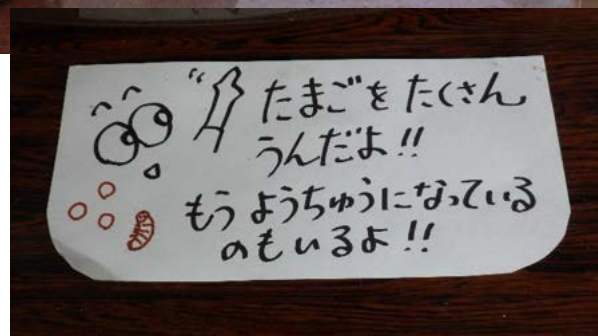 たまごを たくさん
うんだよ!!
もう ようちゅうになっている
のもいるよ!!